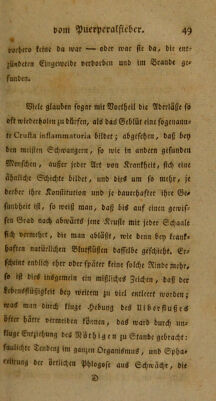 vom Puerperalfieber. 49
vorhero keine da war — oder war sie da, die ent-
zündeten Eingeweide verdorben und im Brande ge-
funden.
Viele glauben sogar mit Vortheil die Aderläße so
oft wiederholen zu dürfen, als das Geblüt eine sogenann-
te Crusta inflammatoria bildet; abgesehen, daß bey
den meisten Schwangern, so wie in andern gesunden
Menschen, außer jeder Art von Krankheit, sich eine
ähnliche Schichte bildet, und dies um so mehr, je
beßer ihre Konstitution und je dauerhafter ihre Ge-
sundheit ist, so weiß man, daß bis auf einen gewis-
sen Grad nach abwärts jene Kruste mit jeder Schaale
sich vermehret, die man abläßt, wie denn bey krank-
haften natürlichen Blutflüßen dasselbe geschieht. Er-
scheint endlich eher oder später keine solche Rinde mehr,
so ist dies insgemein ein mißliches Zeichen, daß der
Lebensflüßigkeit bey weitem zu viel entleert worden;
was man durch kluge Hebung des Ueberflußes
öfter hätte vermeiden können, das ward durch un-
kluge Entziehung des Nöthigen zu Stande gebracht:
faulichte Tendenz im ganzen Organismus, und Spha-
celirung der örtlichen Phlogose aus Schwäche, die
D